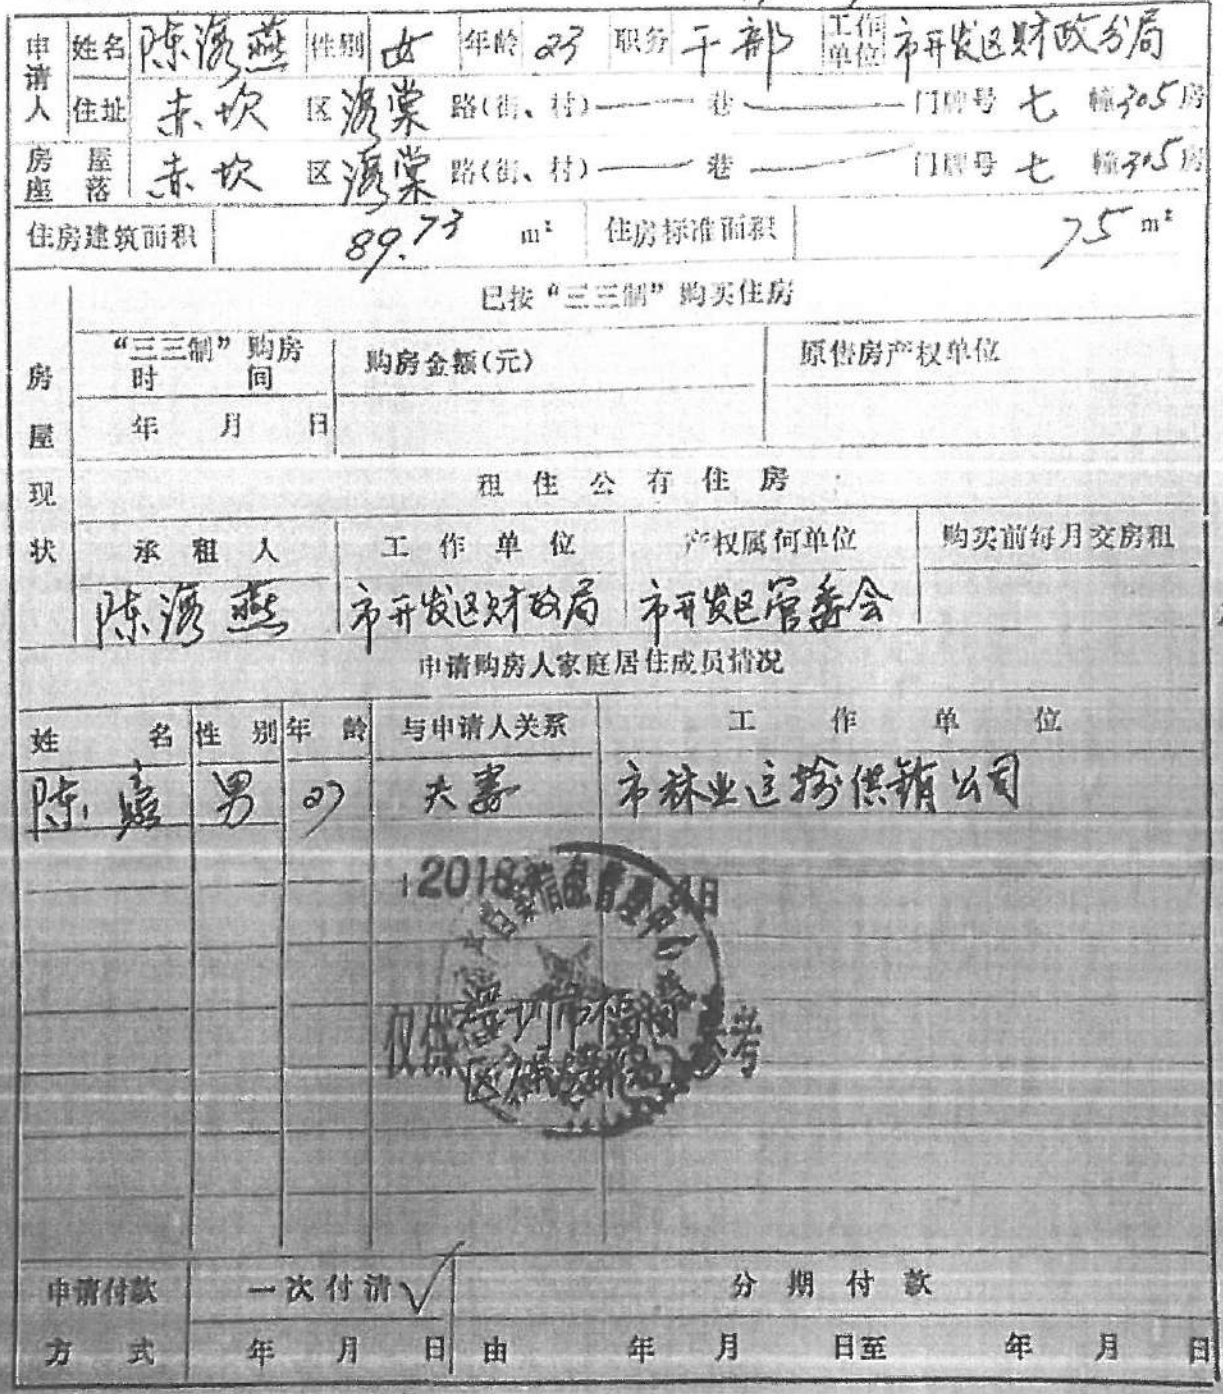 申请人 姓名 陈海燕 性别 女 年龄 23 职务 干部 工作单位 市开发区财政分局
住址 赤坎 区 海棠 路(街、村) 巷 门牌号 七 幢305房
房屋座落 赤坎 区 海棠 路(街、村) 巷 门牌号 七 幢305房
住房建筑面积 89.73 m² 住房标准面积 75 m²
房屋现状
已按“三三制”购买住房
“三三制”购房时间 购房金额(元) 原售房产权单位
年 月 日
租住公有住房
承租人 工作单位 产权属何单位 购买前每月交房租
陈海燕 市开发区财政局 市开发区管委会
申请购房人家庭居住成员情况
姓名 性别 年龄 与申请人关系 工作单位
陈 男 27 夫妻 市林业运输供销公司
2018 日
档案信息管理中心
仅供 参考
申请付款方式 一次付清√ 分期付款
年 月 日 由 年 月 日至 年 月 日